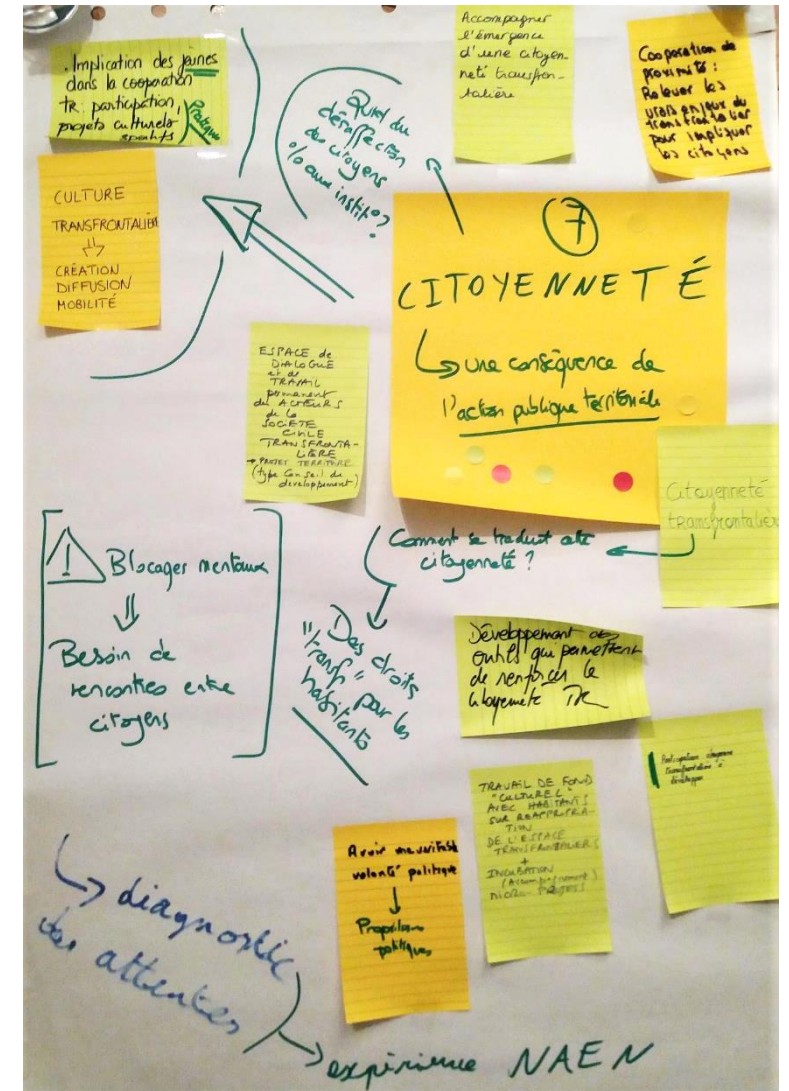 . Implication des jeunes
dans la coopération
TR. participation,
projets culturels
sportifs
Pratique
CULTURE
TRANSFRONTALIÈRE
⇓
CRÉATION
DIFFUSION
MOBILITÉ
Quid du
désaffection
des citoyens
% aux instit°?
Accompagner
l'émergence
d'une citoyen-
neté transfron-
talière
Coopération de
proximité :
Relever les
vrais enjeux du
transfrontalier
pour impliquer
les citoyens
7
CITOYENNETÉ
↳ une conséquence de
l'action publique territoriale
ESPACE de
DIALOGUE
et de
TRAVAIL
permanent
des ACTEURS
de la
SOCIÉTÉ
CIVILE
TRANSFRONTA-
LIÈRE
→ PROJET TERRITOIRE
(type Conseil de
développement)
Citoyenneté
transfrontalière
Comment se traduit cette
citoyenneté ?
! Blocages mentaux
⇓
Besoin de
rencontres entre
citoyens
Des droits
"transf" pour les
habitants
Développement des
outils qui permettent
de renforcer la
citoyenneté TR
Participation citoyenne
transfrontalière à
développer
TRAVAIL DE FOND
"CULTUREL"
AVEC HABITANTS
SUR REAPPROPRIA-
TION
DE L'ESPACE
TRANSFRONTALIERS
+
INCUBATION
(Accompagnement)
MICRO-PROJETS
Avoir une véritable
volonté politique
↓
Propositions
politiques
↳ diagnostic
des attentes
expérience NAEN